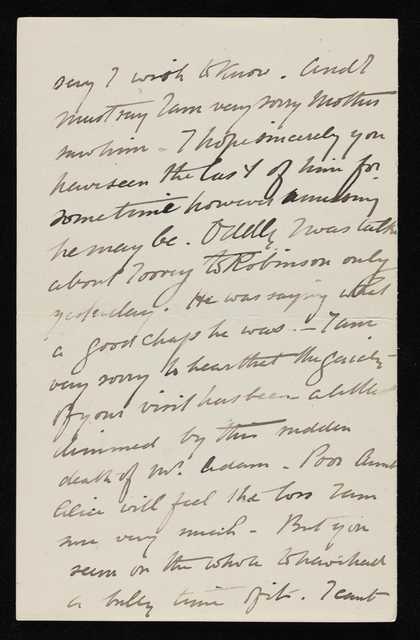 say I wish to know. And I
must say I am very sorry Mother
saw him – I hope sincerely you
have seen the last of him for
some time however amusing
he may be. Oddly I was talking
about to Robinson only
yesterday. He was saying what
a good chap he was. – I am
very sorry to hear that the gaiety
of your visit has been a little
dimmed by this sudden
death of Mr. Adam – Poor Aunt
Alice will feel the loss I am
sure very much – But you
seem on the whole to have had
a bully time of it. I can't